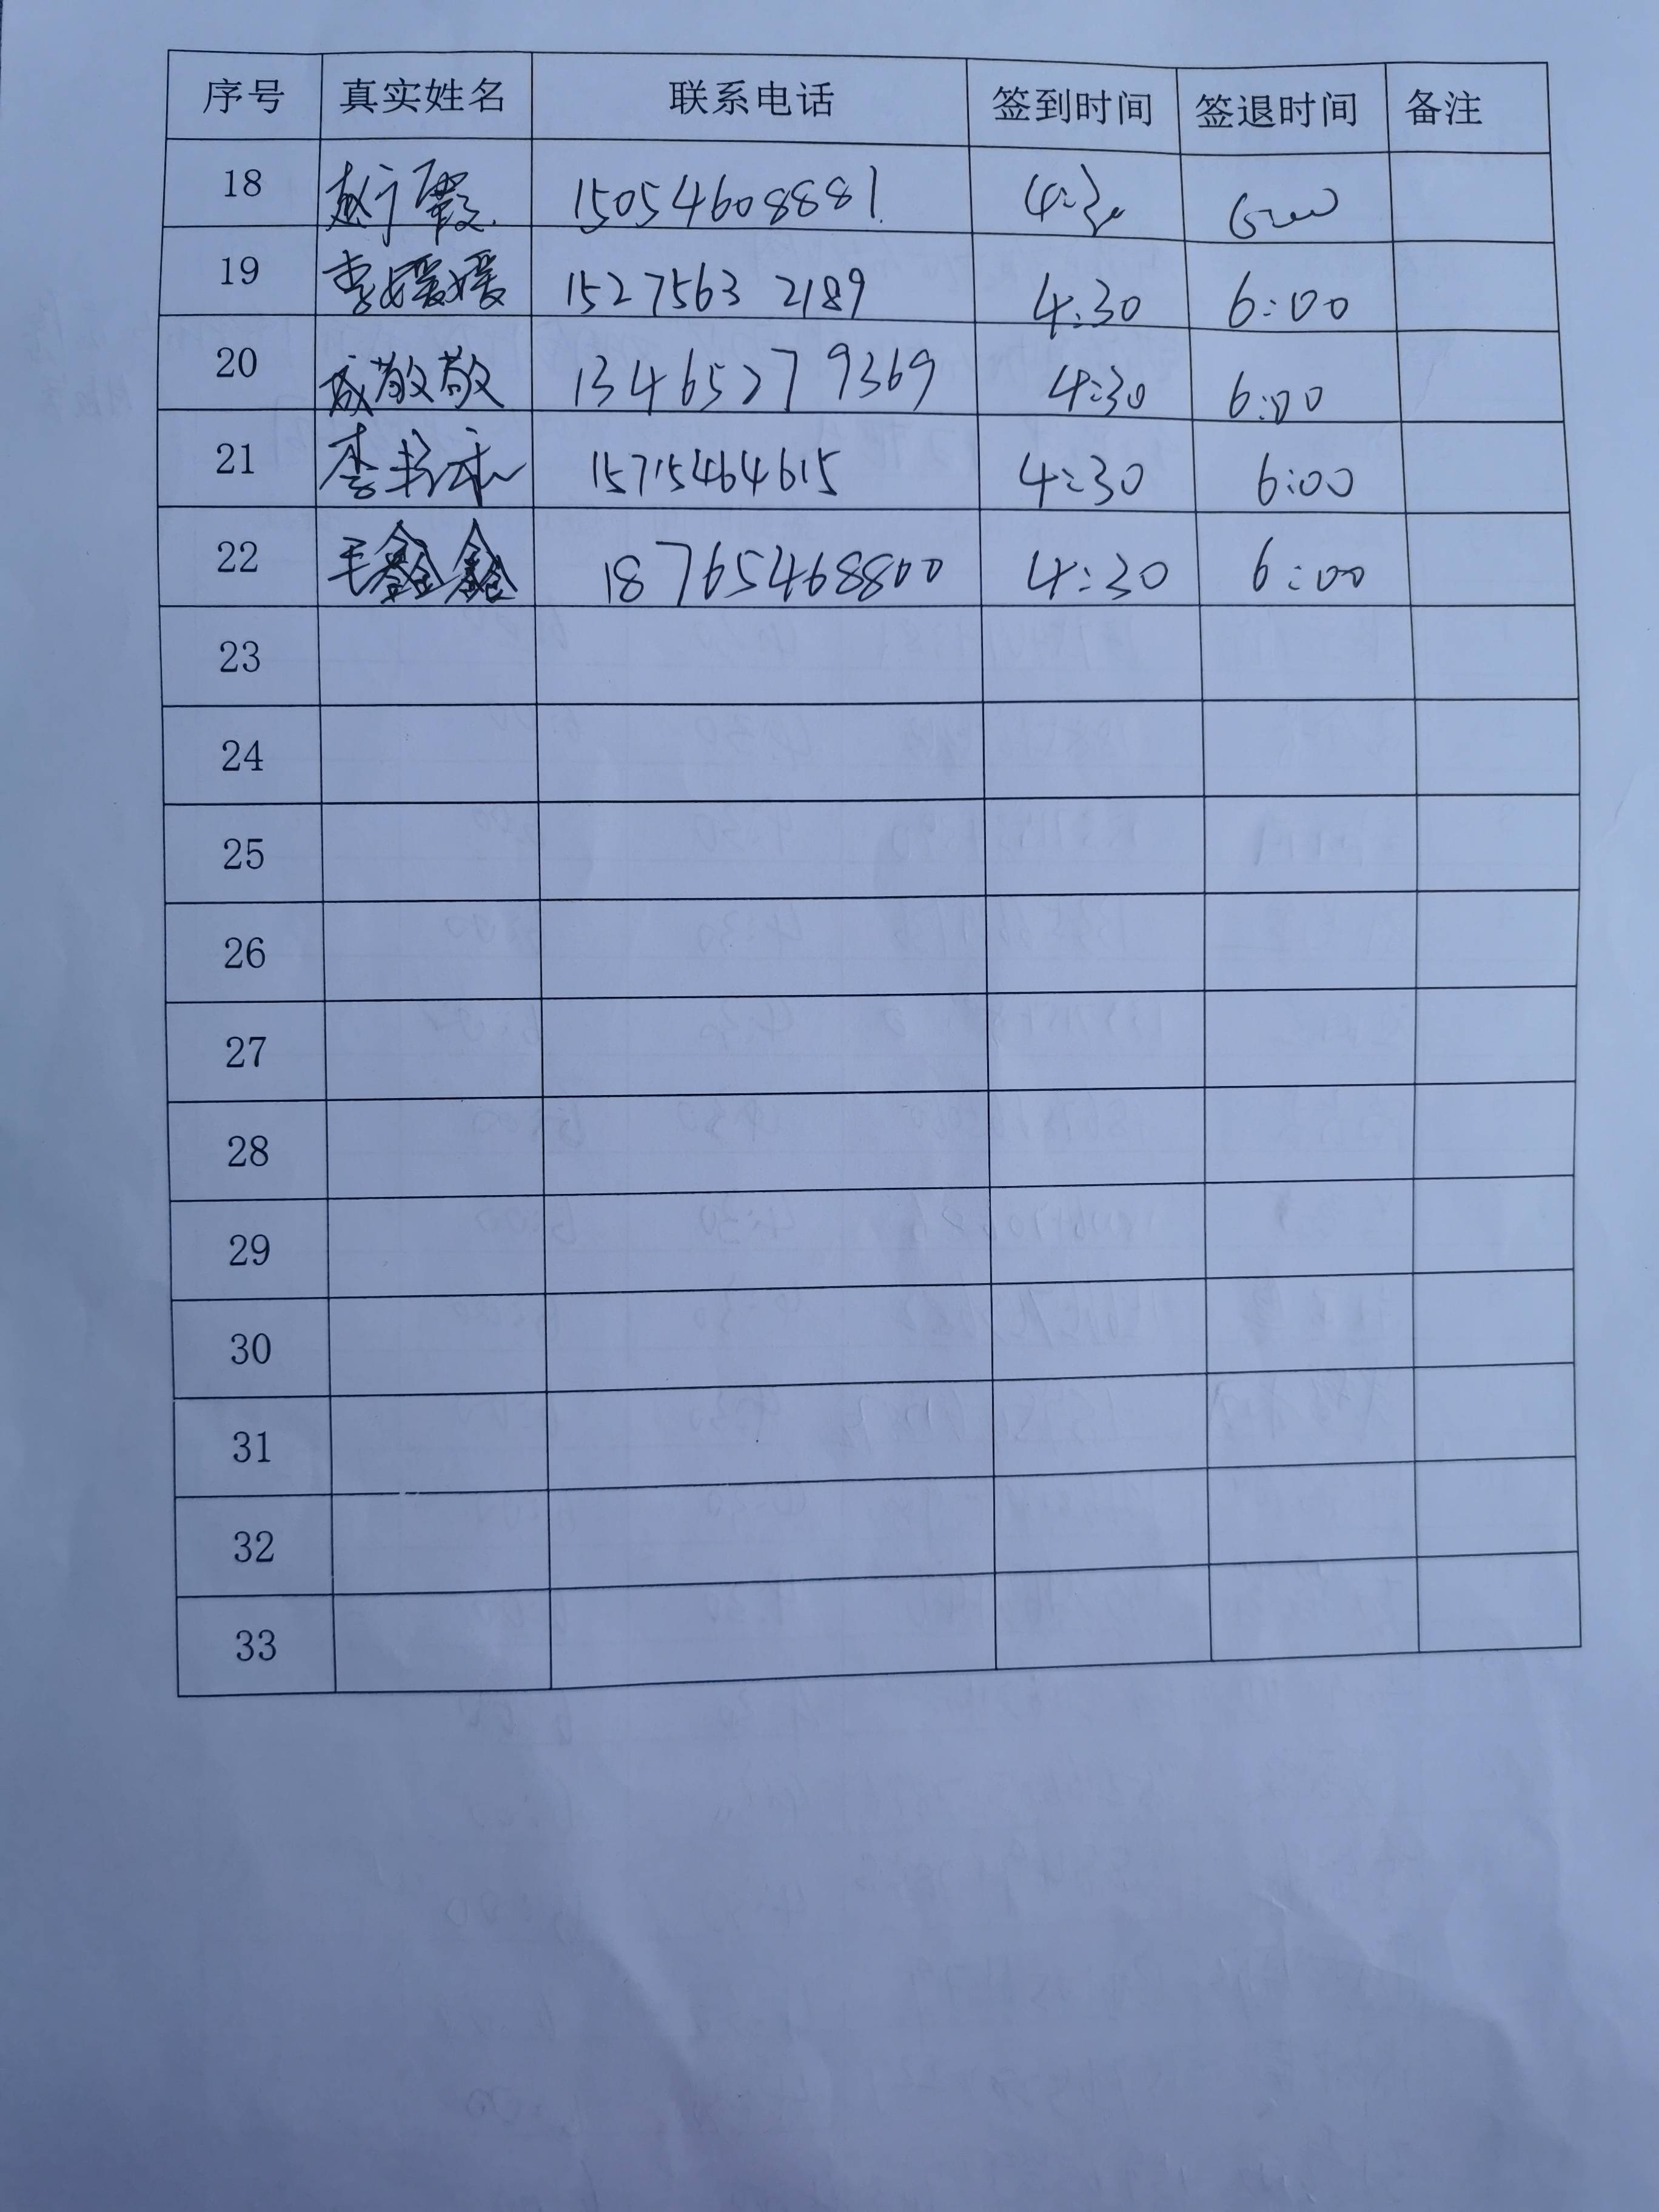 序号 真实姓名 联系电话 签到时间 签退时间 备注
18 赵广霞 15054608881 4:30 6:00
19 李媛媛 15275632189 4:30 6:00
20 成敬敬 13465279369 4:30 6:00
21 李 15715464615 4:30 6:00
22 毛鑫鑫 18765468800 4:30 6:00
23
24
25
26
27
28
29
30
31
32
33